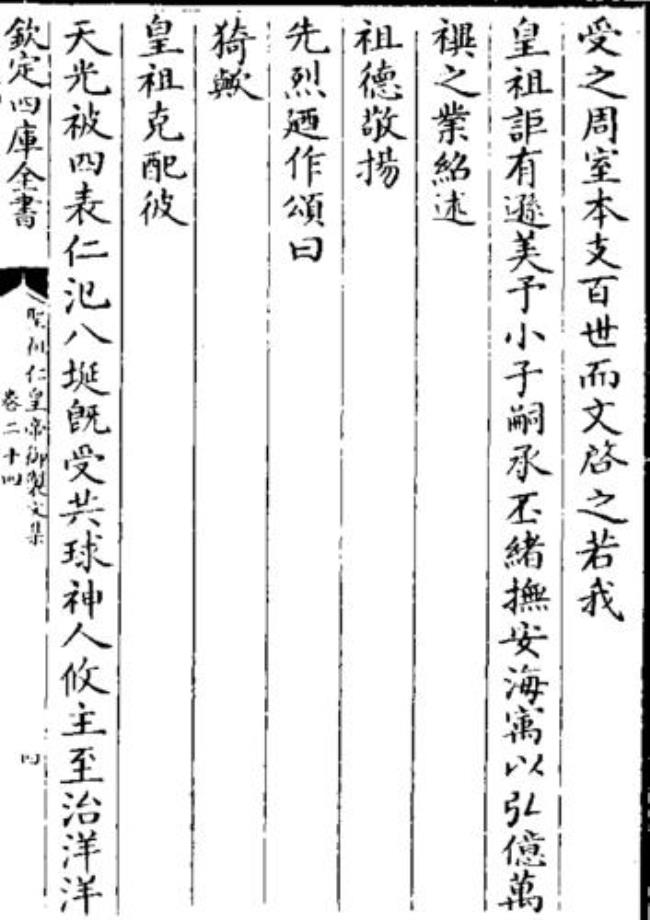 受之周室本支百世而文啓之若我
皇祖詎有遜美予小子嗣承丕緒撫安海寓以弘億萬
禩之業紹述
祖德敬揚
先烈廼作頌曰
猗歟
皇祖克配彼
天光被四表仁汜八埏旣受共球神人攸主至治洋洋
欽定四庫全書
聖祖仁皇帝御製文集
卷二十四
四